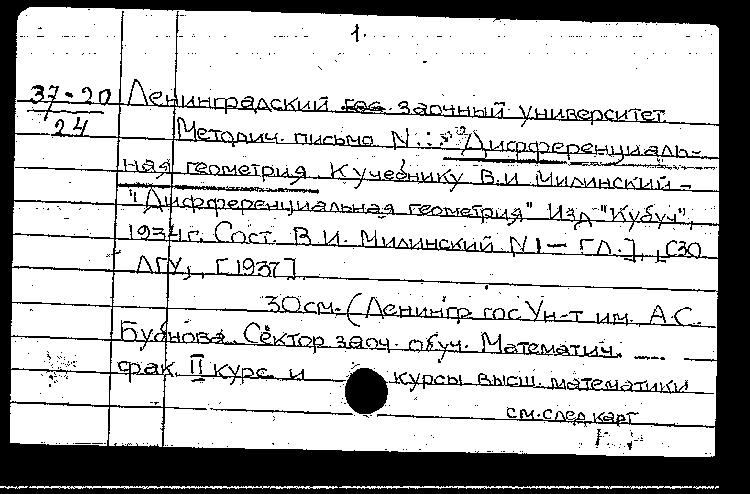 1.
37-20 Ленинградский гос. заочный университет
24
Методич. письмо N : Дифференциаль-
ная геометрия. К учебнику В.И. Милинский -
"Дифференциальная геометрия" Изд "Кубуч",
1934 г. Сост. В.И. Милинский N 1 — [Л.], СЗО
ЛГУ, [1937].
30 см. (Ленингр гос Ун-т им. А.С.
Бубнова. Сектор заоч. обуч. Математич.
фак. II курс и курсы высш. математики
см. след карт